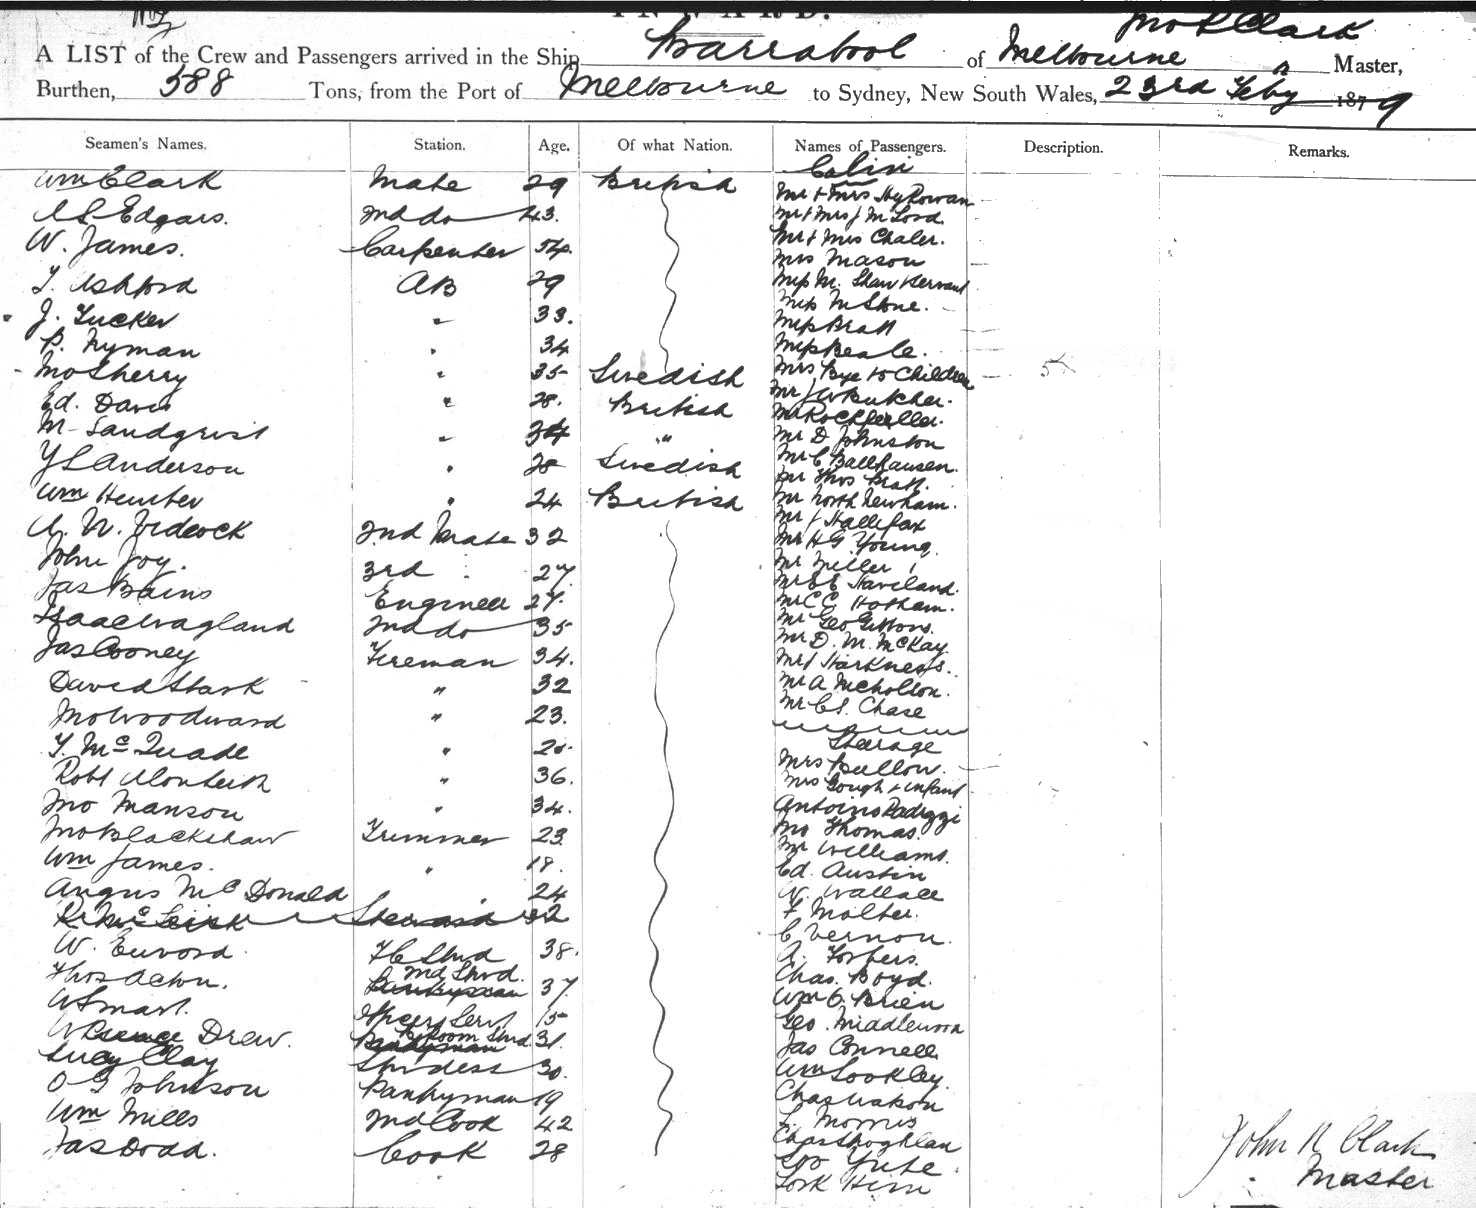 INWARD.
A LIST of the Crew and Passengers arrived in the Ship Barrabool of Melbourne Jno R Clark Master,
Burthen, 588 Tons, from the Port of Melbourne to Sydney, New South Wales, 23rd Feby 1879
Seamen's Names. Station. Age. Of what Nation. Names of Passengers. Description. Remarks.
Wm Clark Mate 29 British
Edgars. 2nd do 43.
W. James. Carpenter 54.
T. Ashford AB 29
J. Tucker " 33.
P. Nyman " 34
Jno Sherry " 35 Swedish
Ed. Davis " 28. British
M. Sandqvist " 34 "
Y L Anderson " 28 Swedish
Wm Hunter " 24 British
A. W. Videock 2nd Mate 32
John Joy. 3rd : 27
Jas Bains Engineer 27.
Isaac Wagland 2nd do 35
Jas Cooney Fireman 34.
David Stark " 32
Jno Woodward " 23.
T. McQuade "
Robt Monteith " 36.
Jno Manson " 34.
Jno Blackshaw Trimmer 23
Wm James. " 18.
Angus McDonald " 24
R McLeish Steward 32
W. F C Stwd 38.
Thos Acton. 2nd Stwd. Pantryman 37
W Smart. Officers Servt 15
W Drew. Bk Room Stwd 31.
Lucy Clay Stwdess 30.
O G Johnson Pantryman 19
Wm Mills 2nd Cook 42
Jas Dodd. Cook 28
Cabin
Mr & Mrs Hy Rowan
Mr & Mrs J M Lord.
Mr & Mrs Chaler.
Mrs Mason
Miss M. Shaw & Servant
Miss M Stone.
Miss Bratt
Miss Beale.
Mrs Bye & 5 Children 5
Mr J W Butcher.
Mr Rockfeller.
Mr D Johnston
Mr C Ballhausen.
Mr Thos Bratt.
Mr North Newham.
Mr J Hallifax
Mr H G Young.
Mr Miller
Mr E E Haveland.
Mr C C Hotham.
Mr Geo Gibbons.
Mr D. M. McKay.
Mr J Harkness.
Mr A Nicholson.
Mr C S. Chase
Steerage
Mrs Bullow.
Mrs Gough & infant
Antoino Padizzi
Jno Thomas.
Mr Williams.
Ed. Austin
W. Wallace
F Molter.
C Vernon.
A. Forbers.
Chas. Boyd.
Wm O'Brien
Geo. Middleton
Jas Connell
Wm Lookley.
Chas Watson
L. Morris
Chas Shoghlan
Loo Yute.
Lork Him
John R Clark
Master